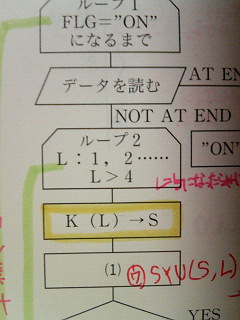 ループ1
FLG="ON"
になるまで
データを読む
AT END
NOT AT END
ループ2
L:1,2……
L>4
"ON"
K(L)→S
(1)
(ウ) S×U(S,L)
YES